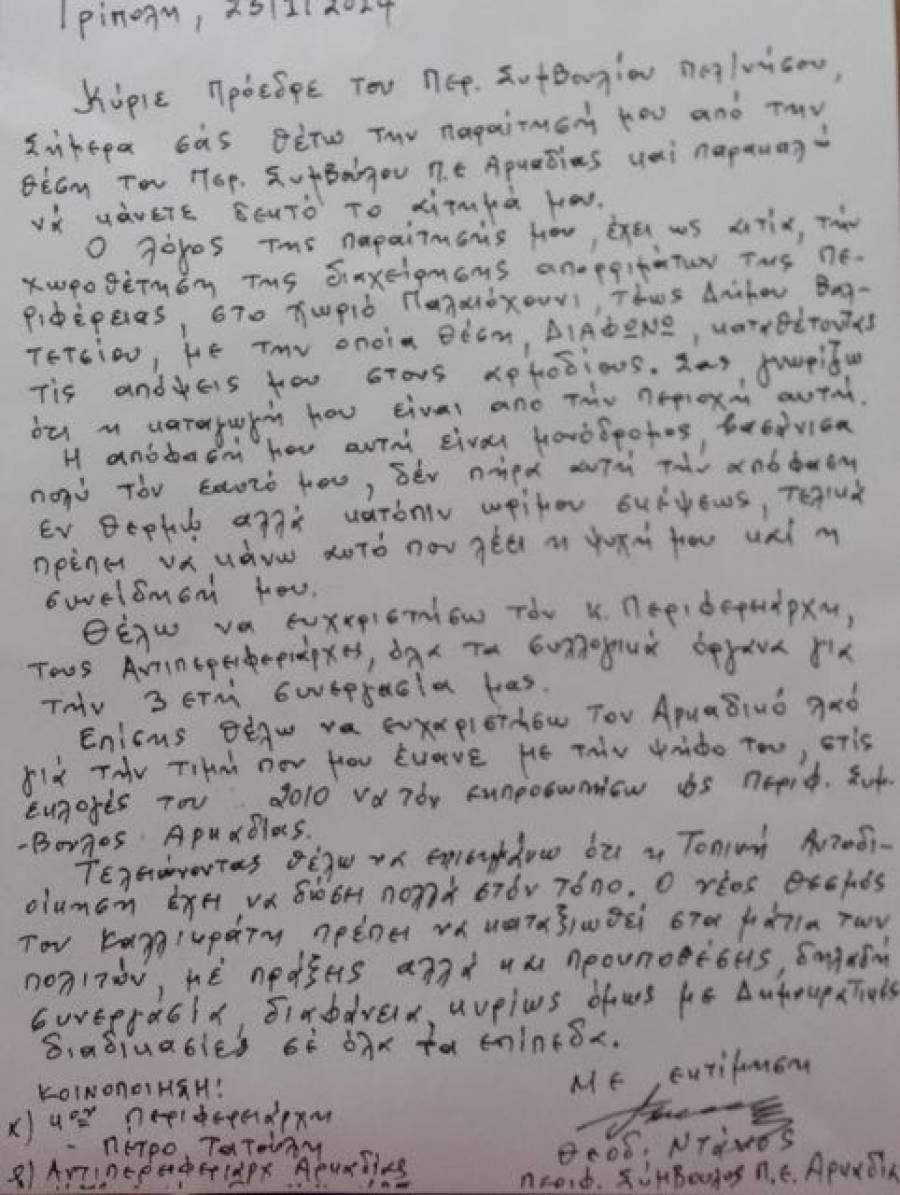 Τρίπολη, 23/1/2014
Κύριε Πρόεδρε του Περ. Συμβουλίου Πελ/νήσου,
Σήμερα σάς θέτω την παραίτησή μου από την
θέση του Περ. Συμβούλου Π.Ε Αρκαδίας καί παρακαλώ
νά κάνετε δεκτό το αίτημά μου.
Ο λόγος της παραίτησής μου, έχει ως αιτία, τήν
χωροθέτηση της διαχείρησης απορριμάτων της Πε-
ριφέρειας, στο χωριό Παλαιόχουνι, τέως Δήμου Βαλ-
τετσίου, με την οποία θέση, ΔΙΑΦΩΝΩ, καταθέτοντας
τίς απόψεις μου στους αρμοδίους. Σας γνωρίζω
ότι η καταγωγή μου είναι από τήν περιοχή αυτή.
Η απόφασή μου αυτή είναι μονόδρομος, βασάνισα
πολύ τόν εαυτό μου, δέν πήρα αυτή τήν απόφαση
εν θερμώ αλλά κατόπιν ωρίμου σκέψεως, τελικά
πρέπει να κάνω αυτό που λέει η ψυχή μου καί η
συνείδησή μου.
Θέλω να ευχαριστήσω τόν κ. Περιφερειάρχη,
τους Αντιπερειφεριάρχες, όλα τα συλλογικά όργανα για
τήν 3 ετή συνεργασία μας.
Επίσης θέλω να ευχαριστήσω τον Αρκαδικό λαό
γιά τήν τιμή που μου έκανε με τήν ψήφο του, στίς
εκλογές του 2010 να τόν εκπροσωπήσω ώς Περιφ. Συμ.
-βουλος Αρκαδίας.
Τελειώνοντας θέλω να επισημάνω ότι η Τοπική Αυτοδι-
οίκηση έχει να δώσει πολλά στόν τόπο. Ο νέος θεσμός
του Καλλικράτη πρέπει να καταξιωθεί στα μάτια των
πολιτών, μέ πράξης αλλά και προυποθέσης, δηλαδή
συνεργασία, διαφάνεια, κυρίως όμως με Δημοκρατικές
διαδικασίες σέ όλα τα επίπεδα.
ΚΟΙΝΟΠΟΙΗΣΗ!
Με εκτίμηση
α) κον Περιφερειάρχη
- Πέτρο Τατούλη
Θεοδ. Ντάνος
β) Αντιπερειφεριάρχ Αρκαδίας
Περιφ. Σύμβουλος Π.Ε. Αρκαδία